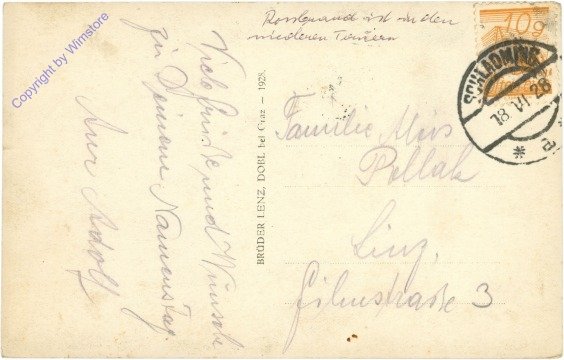 Rossbrand ist in den
niederen Tauern
Viele Grüße und Wünsche
zu Deinem Namenstag
Dein Adolf
BRÜDER LENZ, DOBL bei Graz — 1928.
10g
SCHLADMING
18.VI.28
* a
Familie
Pollak
Linz,
3
Copyright by Wimstore